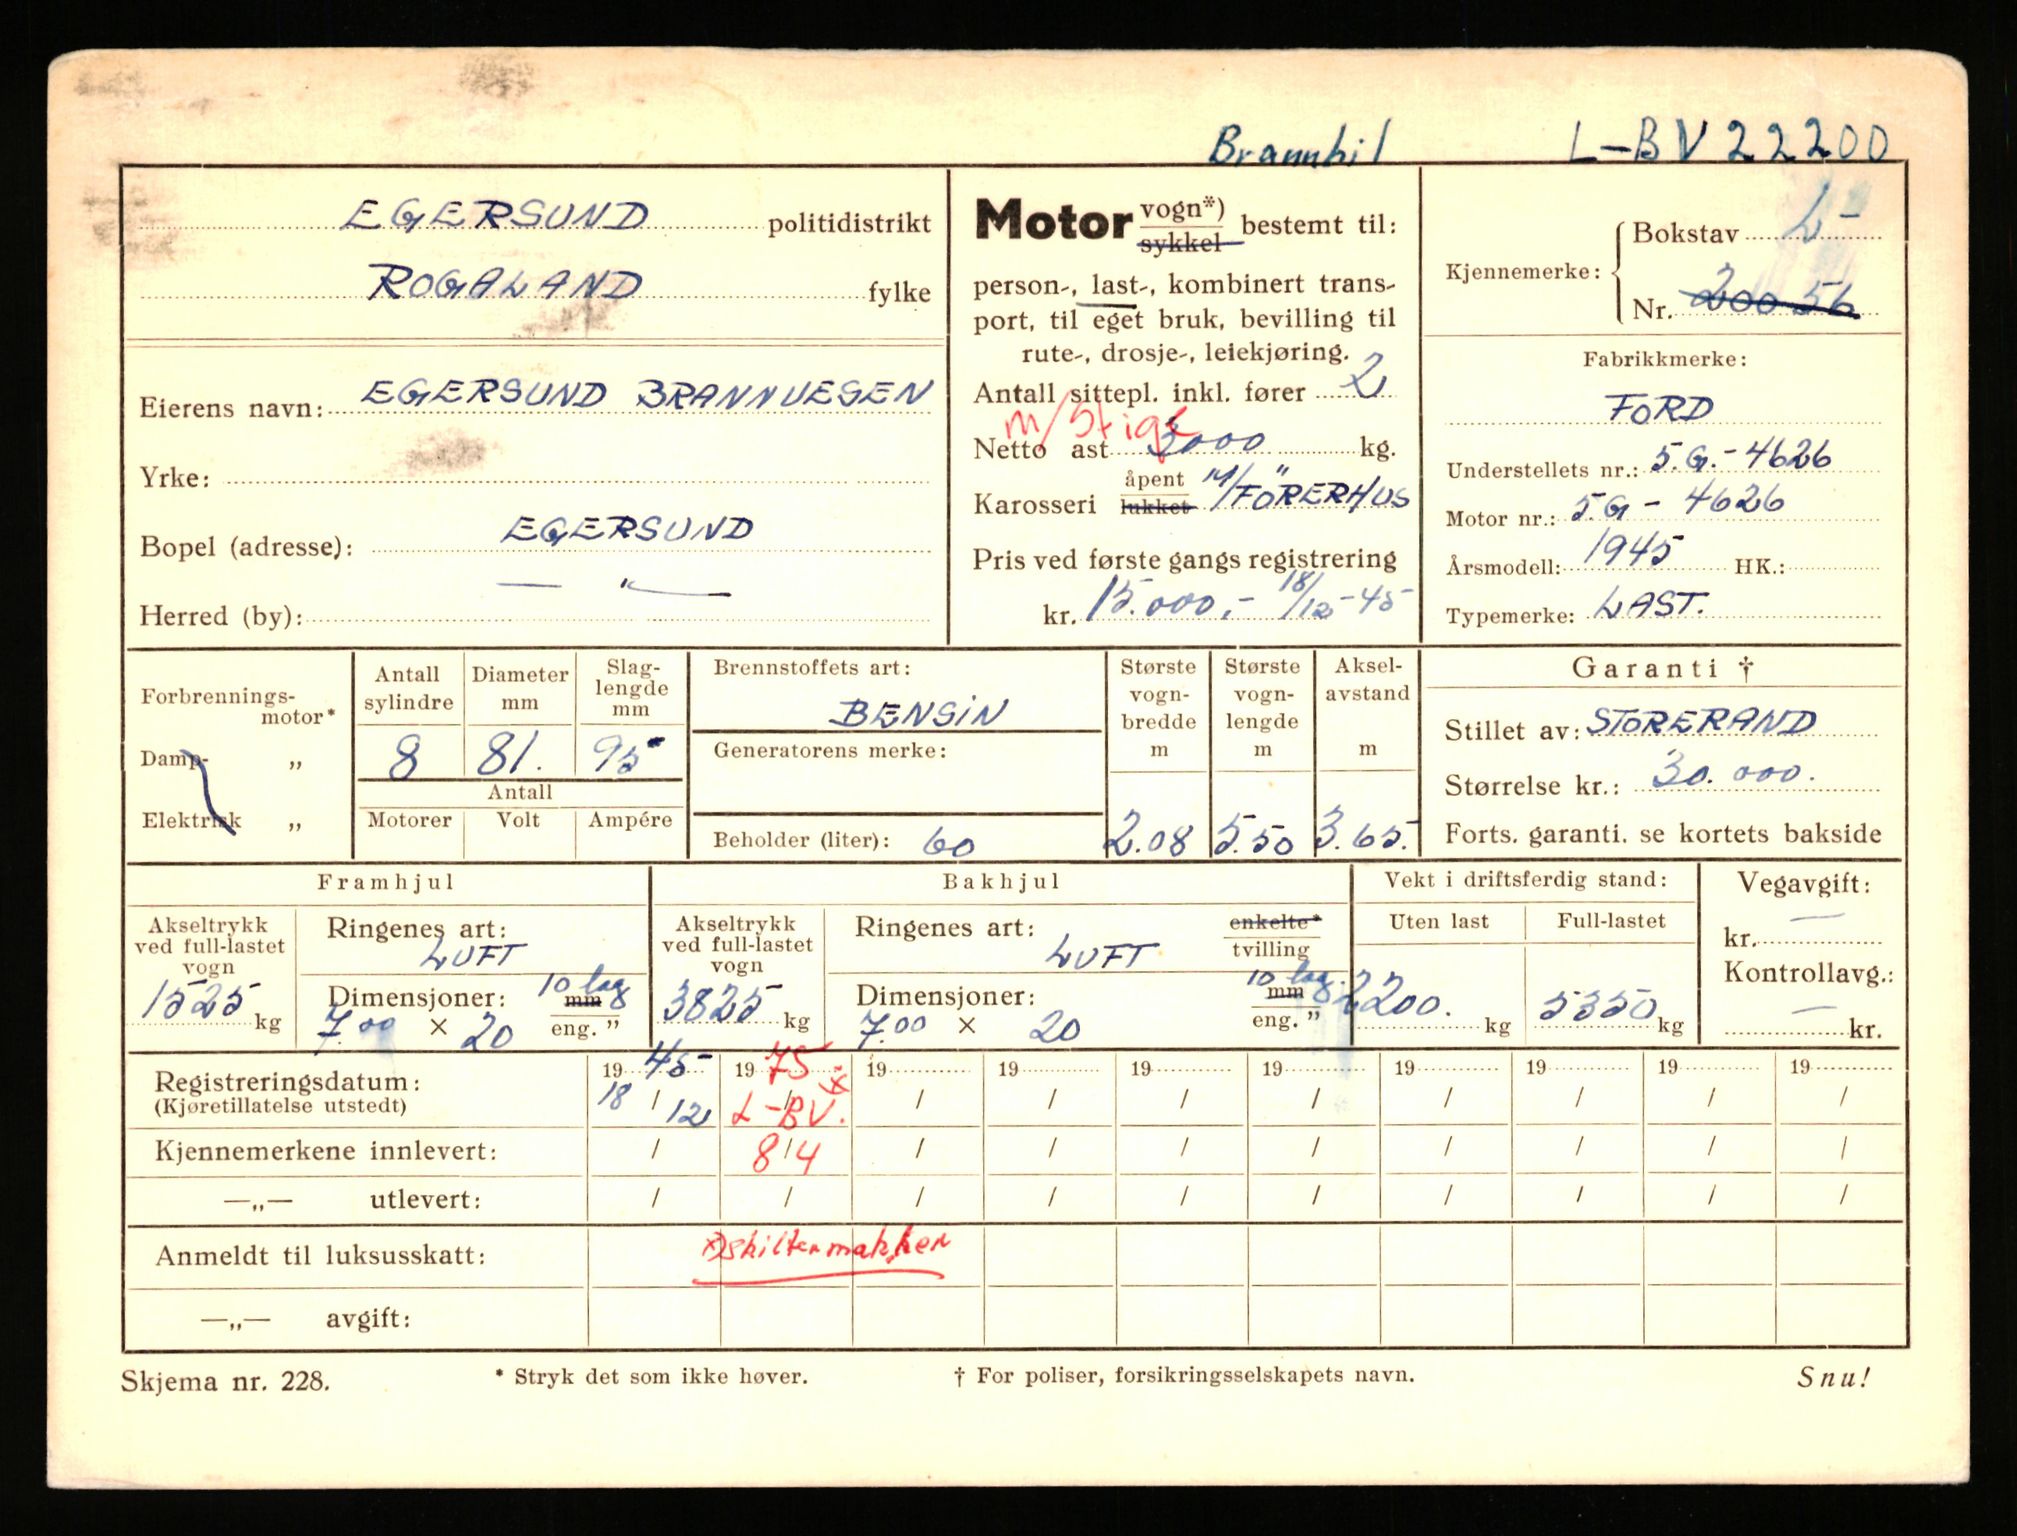 Brannbil L-BV 22200
EGERSUND politidistrikt
ROGALAND fylke
Eierens navn: EGERSUND BRANNVESEN
Yrke:
Bopel (adresse): EGERSUND
Herred (by): — " —
Motor vogn*) sykkel bestemt til:
person-, last-, kombinert trans-
port, til eget bruk, bevilling til
rute-, drosje-, leiekjøring.
Antall sittepl. inkl. fører 2
m/Stige
Netto last 3000 kg.
Karosseri åpent lukket M/FÖRERHUS
Pris ved første gangs registrering
kr. 15.000,- 18/12-45
Kjennemerke: Bokstav L-
Nr. 20056
Fabrikkmerke:
FORD
Understellets nr.: 5.G.-4626
Motor nr.: 5.G-4626
Årsmodell: 1945 HK.:
Typemerke: LAST.
Forbrennings-
motor*
Damp- „
Elektrisk „
Antall sylindre
8
Diameter mm
81.
Slag-
lengde
mm
95
Antall
Motorer Volt Ampére
Brennstoffets art:
BENSIN
Generatorens merke:
Beholder (liter): 60
Største
vogn-
bredde
m
2.08
Største
vogn-
lengde
m
5.50
Aksel-
avstand
m
3.65.
Garanti †
Stillet av: STOREBRAND
Størrelse kr.: 30.000.
Forts. garanti. se kortets bakside
Framhjul
Akseltrykk
ved full-lastet
vogn
1525 kg
Ringenes art:
LUFT
Dimensjoner: 10 lag mm
7.00 × 20 eng. ”
Bakhjul
Akseltrykk
ved full-lastet
vogn
3825 kg
Ringenes art: enkelte*
LUFT tvilling
Dimensjoner: 10 lag mm
7.00 × 20 eng. ”
Vekt i driftsferdig stand:
Uten last Full-lastet
2200. kg 5350 kg
Vegavgift:
kr. —
Kontrollavg.:
— kr.
Registreringsdatum: 19 45 19 75 19 19 19 19 19 19 19 19
(Kjøretillatelse utstedt) 18 / 12 L-BV. x / / / / / / / /
Kjennemerkene innlevert: / 8/4 / / / / / / / /
—„— utlevert: / / / / / / / / / /
Anmeldt til luksusskatt: x) skiltenmakken
—„— avgift:
Skjema nr. 228. * Stryk det som ikke høver. † For poliser, forsikringsselskapets navn. Snu!